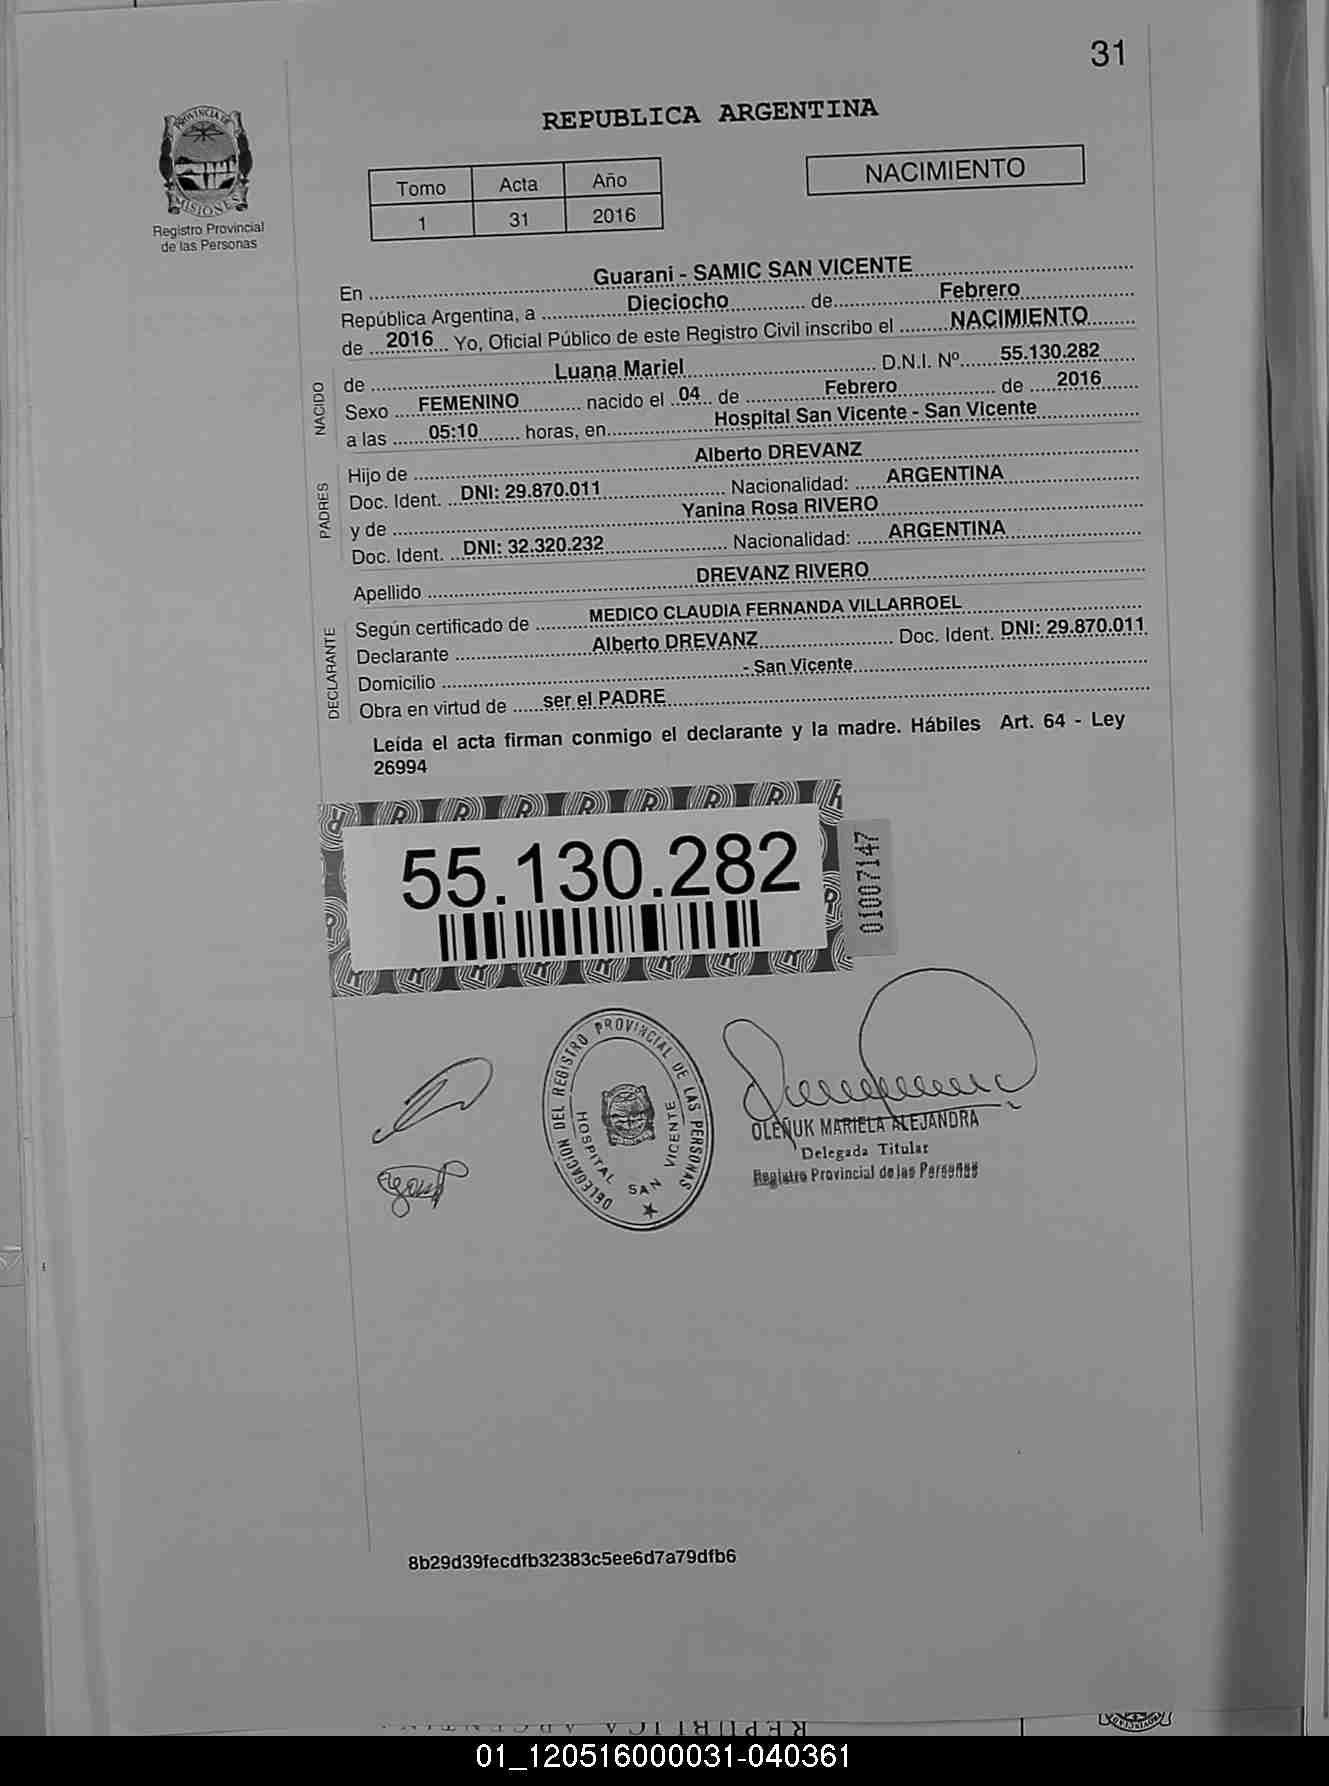 31
PROVINCIA DE
MISIONES
Registro Provincial
de las Personas
REPUBLICA ARGENTINA
Tomo Acta Año
1 31 2016
NACIMIENTO
En Guarani - SAMIC SAN VICENTE
República Argentina, a Dieciocho de Febrero
de 2016 Yo, Oficial Público de este Registro Civil inscribo el NACIMIENTO
NACIDO
de Luana Mariel D.N.I. Nº 55.130.282
Sexo FEMENINO nacido el 04 de Febrero de 2016
a las 05:10 horas, en Hospital San Vicente - San Vicente
PADRES
Hijo de Alberto DREVANZ
Doc. Ident. DNI: 29.870.011 Nacionalidad: ARGENTINA
y de Yanina Rosa RIVERO
Doc. Ident. DNI: 32.320.232 Nacionalidad: ARGENTINA
Apellido DREVANZ RIVERO
DECLARANTE
Según certificado de MEDICO CLAUDIA FERNANDA VILLARROEL
Declarante Alberto DREVANZ Doc. Ident. DNI: 29.870.011
Domicilio - San Vicente
Obra en virtud de ser el PADRE
Leída el acta firman conmigo el declarante y la madre. Hábiles Art. 64 - Ley
26994
55.130.282
01007147
DELEGACIÓN DEL REGISTRO PROVINCIAL DE LAS PERSONAS
HOSPITAL SAN VICENTE
OLEÑUK MARIELA ALEJANDRA
Delegada Titular
Registro Provincial de las Personas
8b29d39fecdfb32383c5ee6d7a79dfb6
REPUBLICA ARGENTINA
01_120516000031-040361